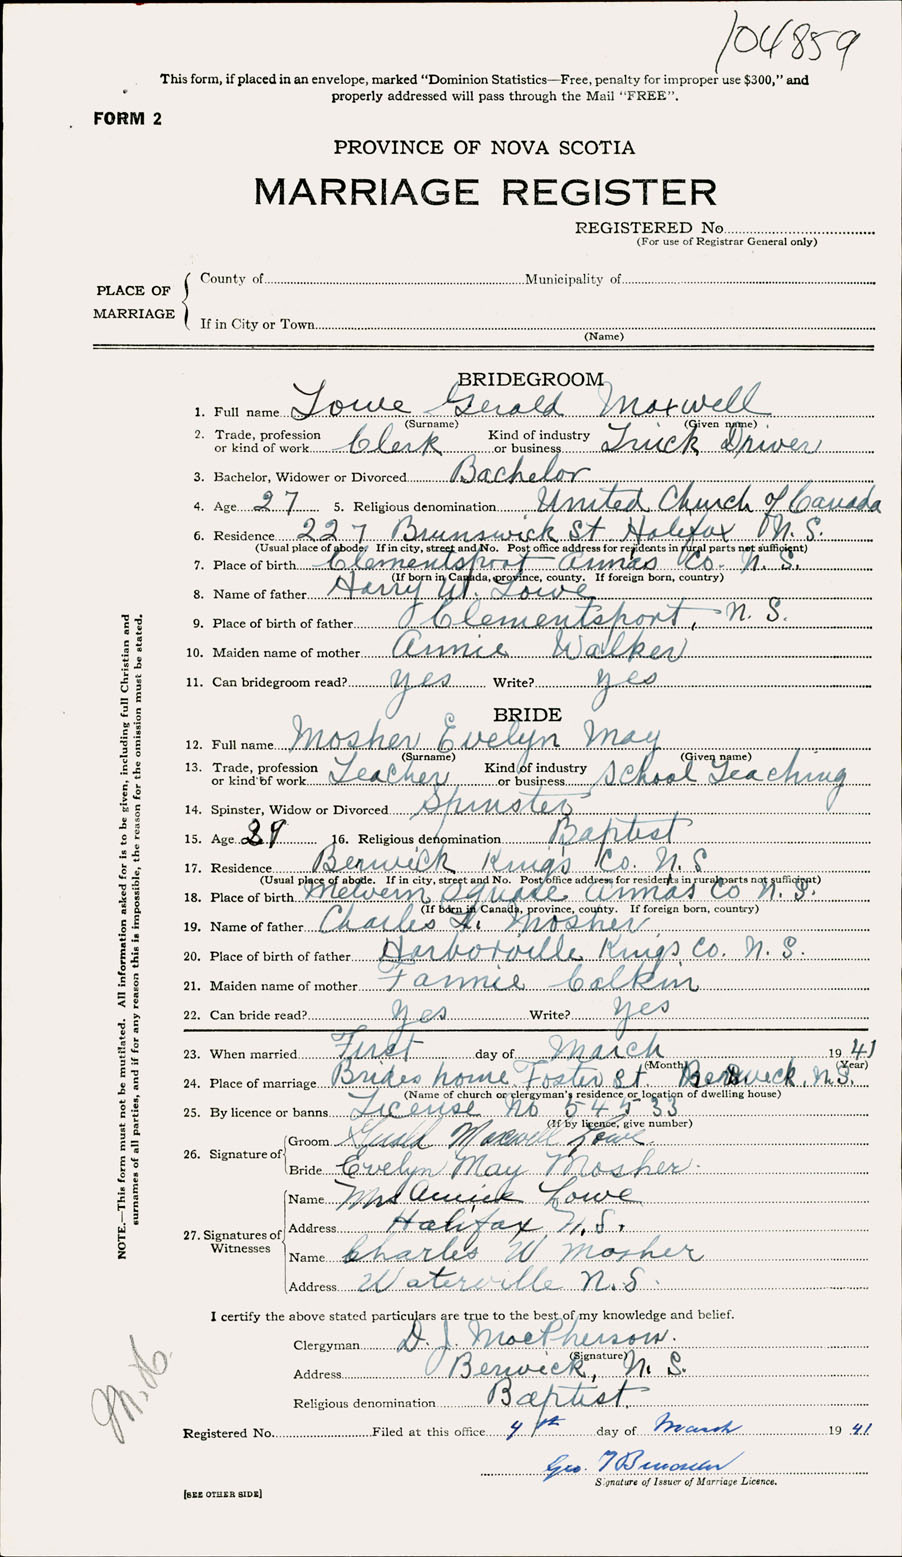 104859
This form, if placed in an envelope, marked "Dominion Statistics—Free, penalty for improper use $300," and
properly addressed will pass through the Mail "FREE".
FORM 2
PROVINCE OF NOVA SCOTIA
MARRIAGE REGISTER
REGISTERED No
(For use of Registrar General only)
PLACE OF MARRIAGE
County of Municipality of
If in City or Town
(Name)
BRIDEGROOM
1. Full name Lowe Gerald Maxwell
(Surname) (Given name)
2. Trade, profession or kind of work Clerk Kind of industry or business Truck Driver
3. Bachelor, Widower or Divorced Bachelor
4. Age 27 5. Religious denomination United Church of Canada
6. Residence 227 Brunswick St Halifax N.S.
(Usual place of abode. If in city, street and No. Post office address for residents in rural parts not sufficient)
7. Place of birth Clementsport Annas Co. N.S.
(If born in Canada, province, county. If foreign born, country)
8. Name of father Harry W. Lowe
9. Place of birth of father Clementsport, N.S.
10. Maiden name of mother Annie Walker
11. Can bridegroom read? yes Write? yes
BRIDE
12. Full name Mosher Evelyn May
(Surname) (Given name)
13. Trade, profession or kind of work Teacher Kind of industry or business School Teaching
14. Spinster, Widow or Divorced Spinster
15. Age 16. Religious denomination Baptist
17. Residence Berwick Kings Co. N.S
(Usual place of abode. If in city, street and No. Post office address for residents in rural parts not sufficient)
18. Place of birth Melvern Square Annas Co N.S.
(If born in Canada, province, county. If foreign born, country)
19. Name of father Charles Mosher
20. Place of birth of father Harborville Kings Co. N.S.
21. Maiden name of mother Fannie Calkin
22. Can bride read? Yes Write? Yes
23. When married First day of March 1941
(Month) (Year)
24. Place of marriage Brides home Foster St. Berwick, N.S.
(Name of church or clergyman's residence or location of dwelling house)
25. By licence or banns License No 54533
(If by licence, give number)
26. Signature of
Groom Gerald Maxwell Lowe
Bride Evelyn May Mosher
27. Signatures of Witnesses
Name Mrs Annie Lowe
Address Halifax N.S.
Name Charles W Mosher
Address Waterville N.S.
I certify the above stated particulars are true to the best of my knowledge and belief.
Clergyman D. J. MacPherson.
(Signature)
Address Berwick, N.S.
Religious denomination Baptist.
Registered No. Filed at this office 4th day of March 1941
Geo.
Signature of Issuer of Marriage Licence.
[SEE OTHER SIDE]
NOTE.—This form must not be mutilated. All information asked for is to be given, including full Christian and
surnames of all parties, and if for any reason this is impossible, the reason for the omission must be stated.